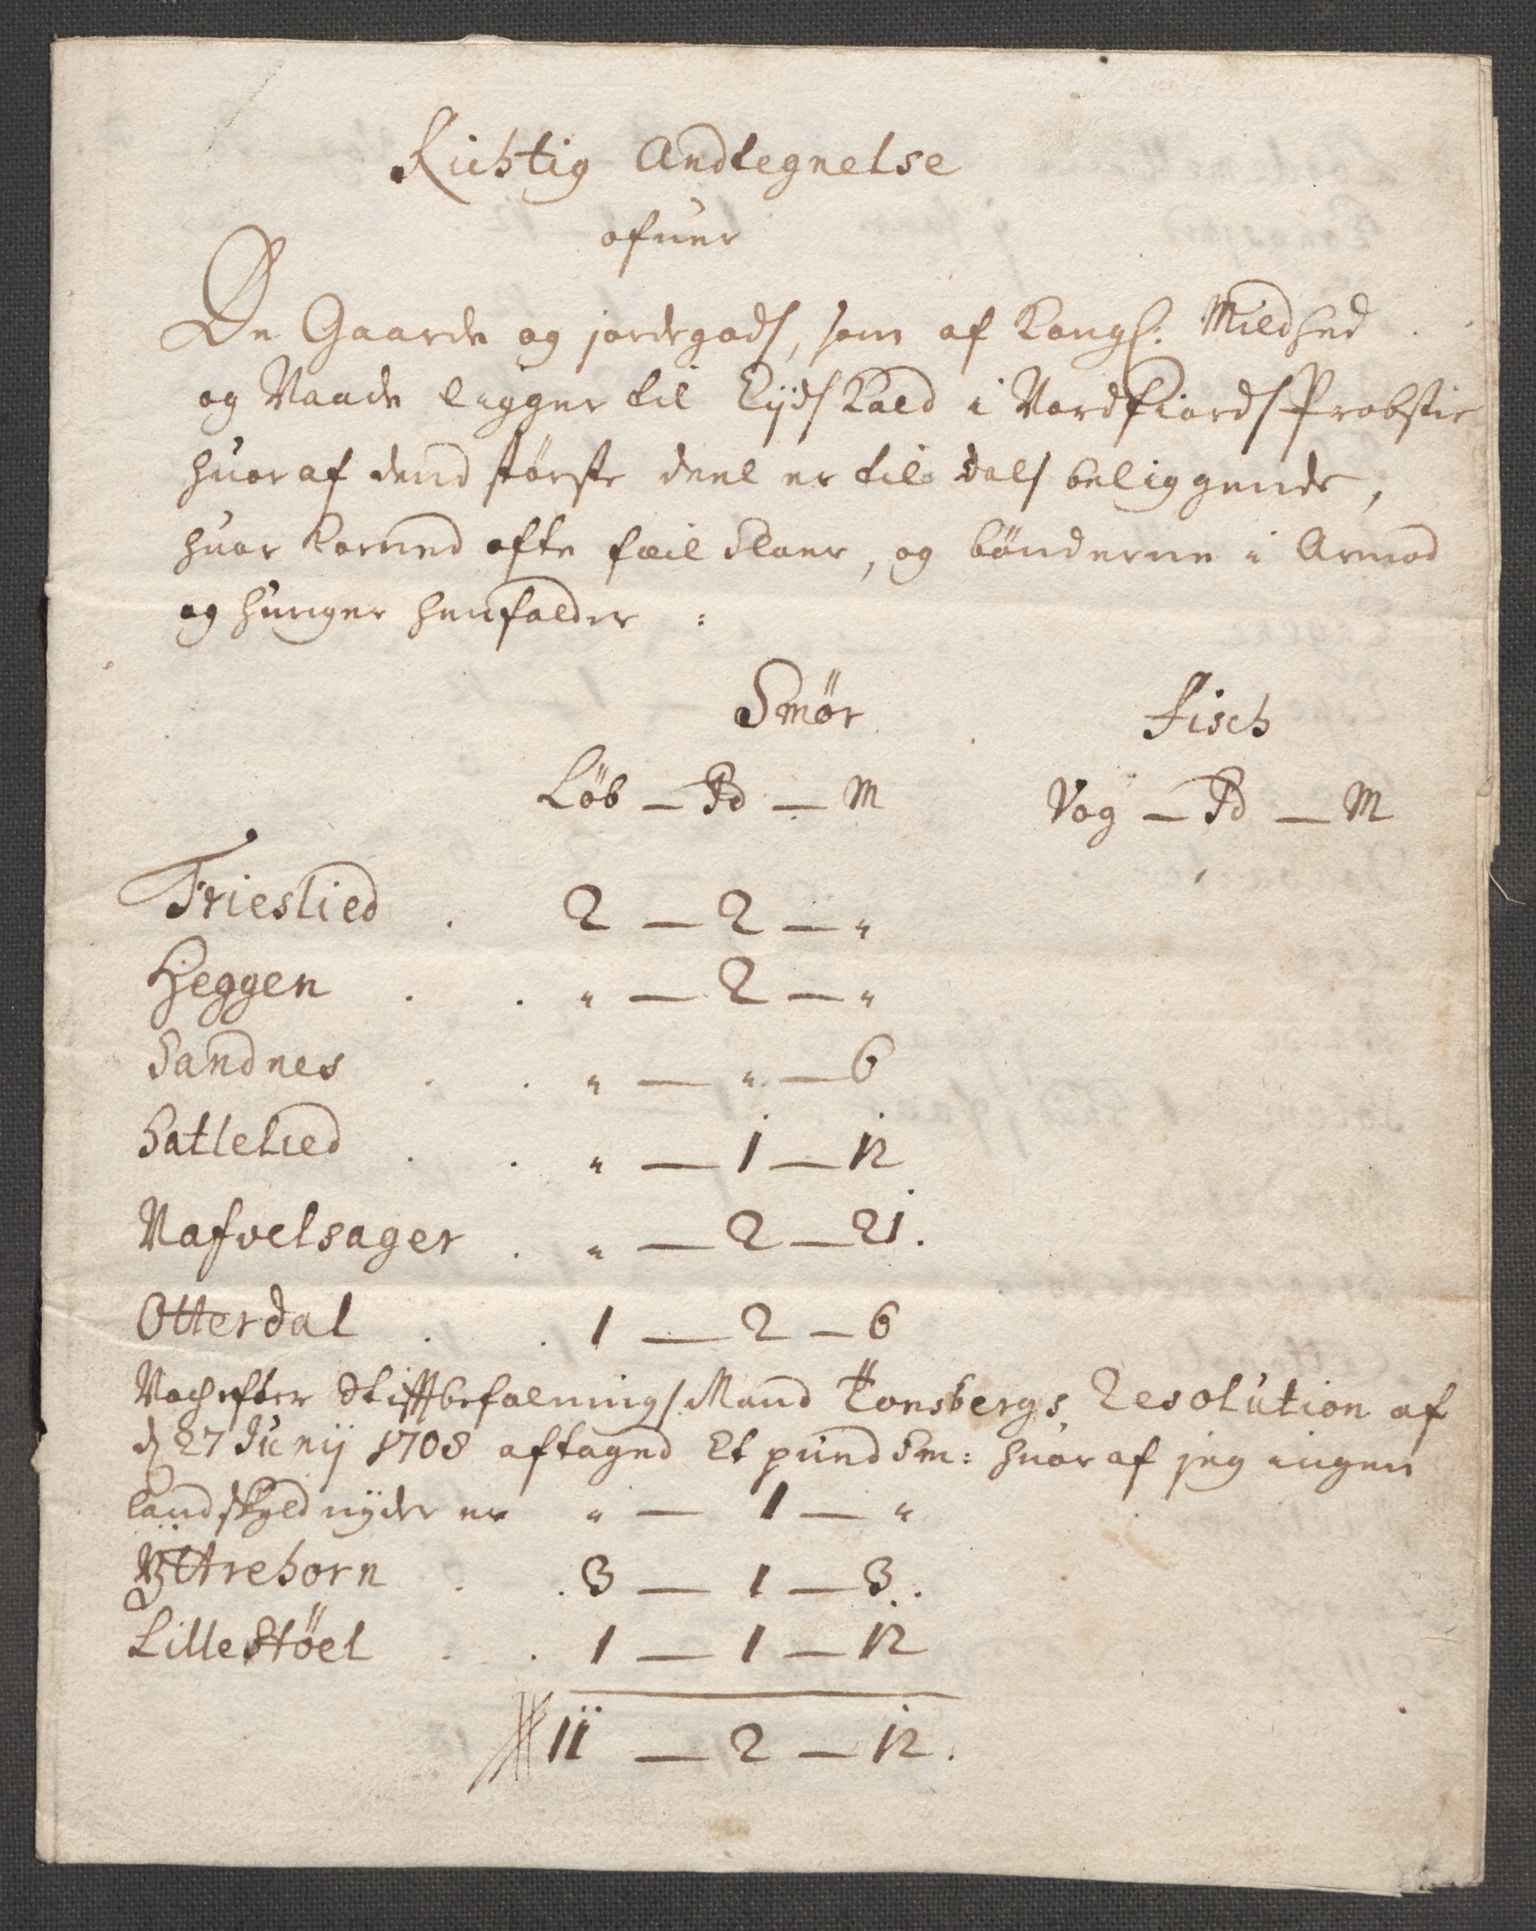 Richtig Andtegnelse
ofuer
De Gaarde og jordegods, som af Kongl: Mildhed
og Naade ligger til Eijds Kald i Nordfiords Probstie
huor af dend største deel er til dals beliggende,
huor Korned ofte feil slaer, og bønderne i Armod
og hunger henfalder :
Smør Fisch
Løb — Pd — M Vog — Pd — M
Frieslied . 2 — 2 — "
Heggen . . " — 2 — "
Sandnes . . " — " — 6
Hatlelied . . " — 1 — 12
Nafvelsager . " — 2 — 21.
Otterdal . . 1 — 2 — 6
Noch efter Stiftbefalnings Mand Tonsbergs Resolution af
d 27 Junij 1708 aftaged Et pund Sm: huor af jeg ingen
landskyld nyder er " — 1 — "
Yttrehorn . . 3 — 1 — 3.
Lillestøel . . 1 — 1 — 12
11 — 2 — 12.